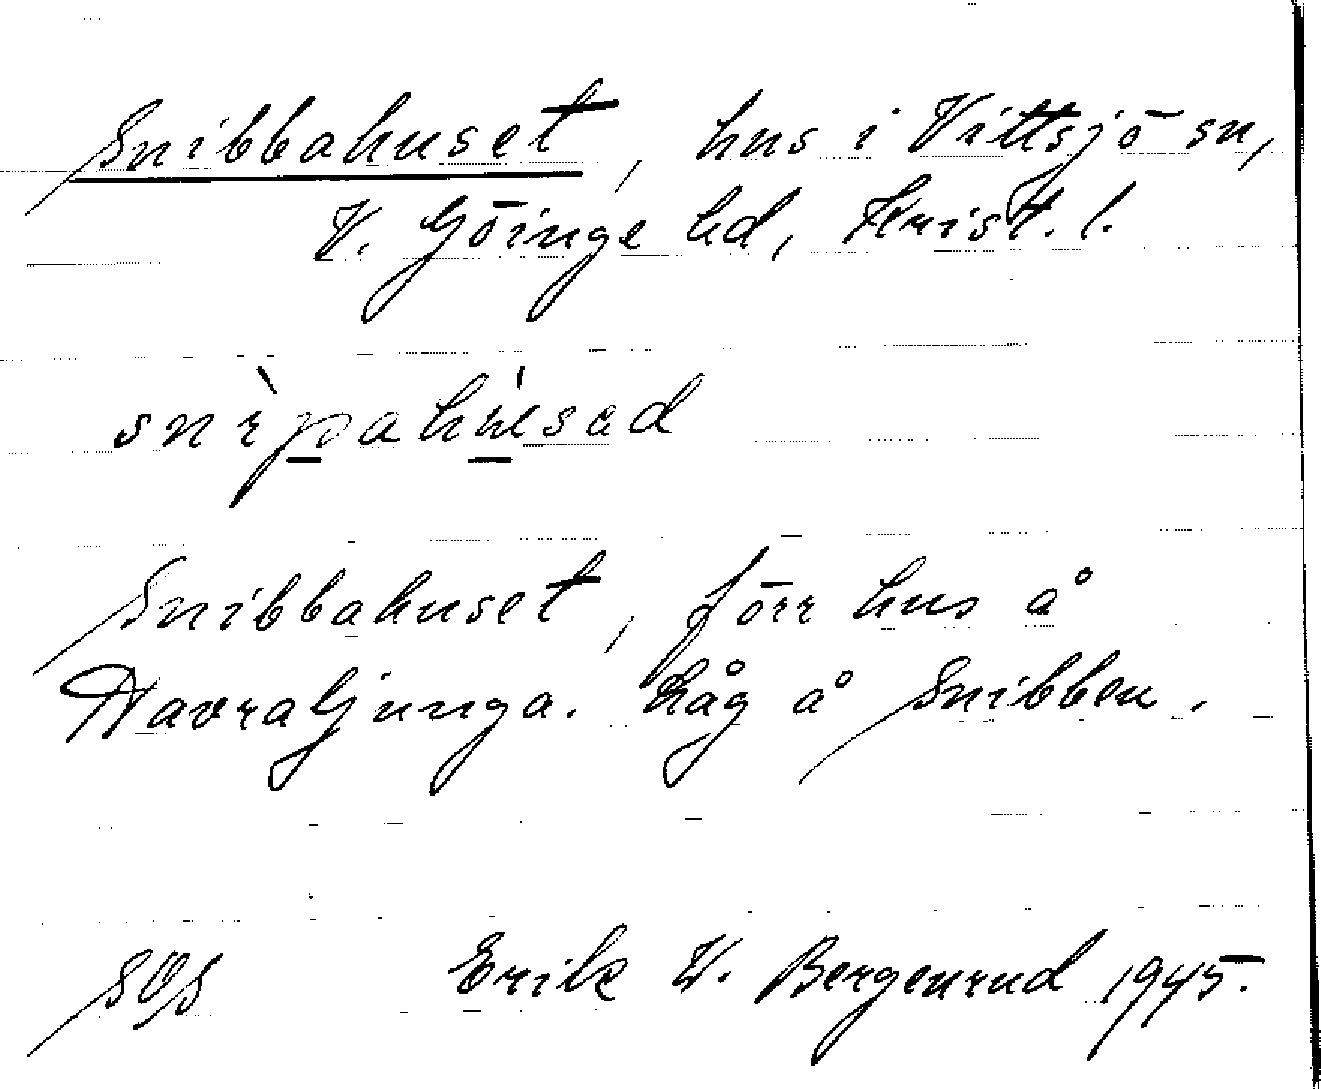 Snibbahuset, hus i Vittsjö sn,
V. Göinge hd, Krist. l.
Snibbahuset, förr hus å
Havraljunga. Låg å Snibben.
SOS Erik W. Bergenrud 1945.